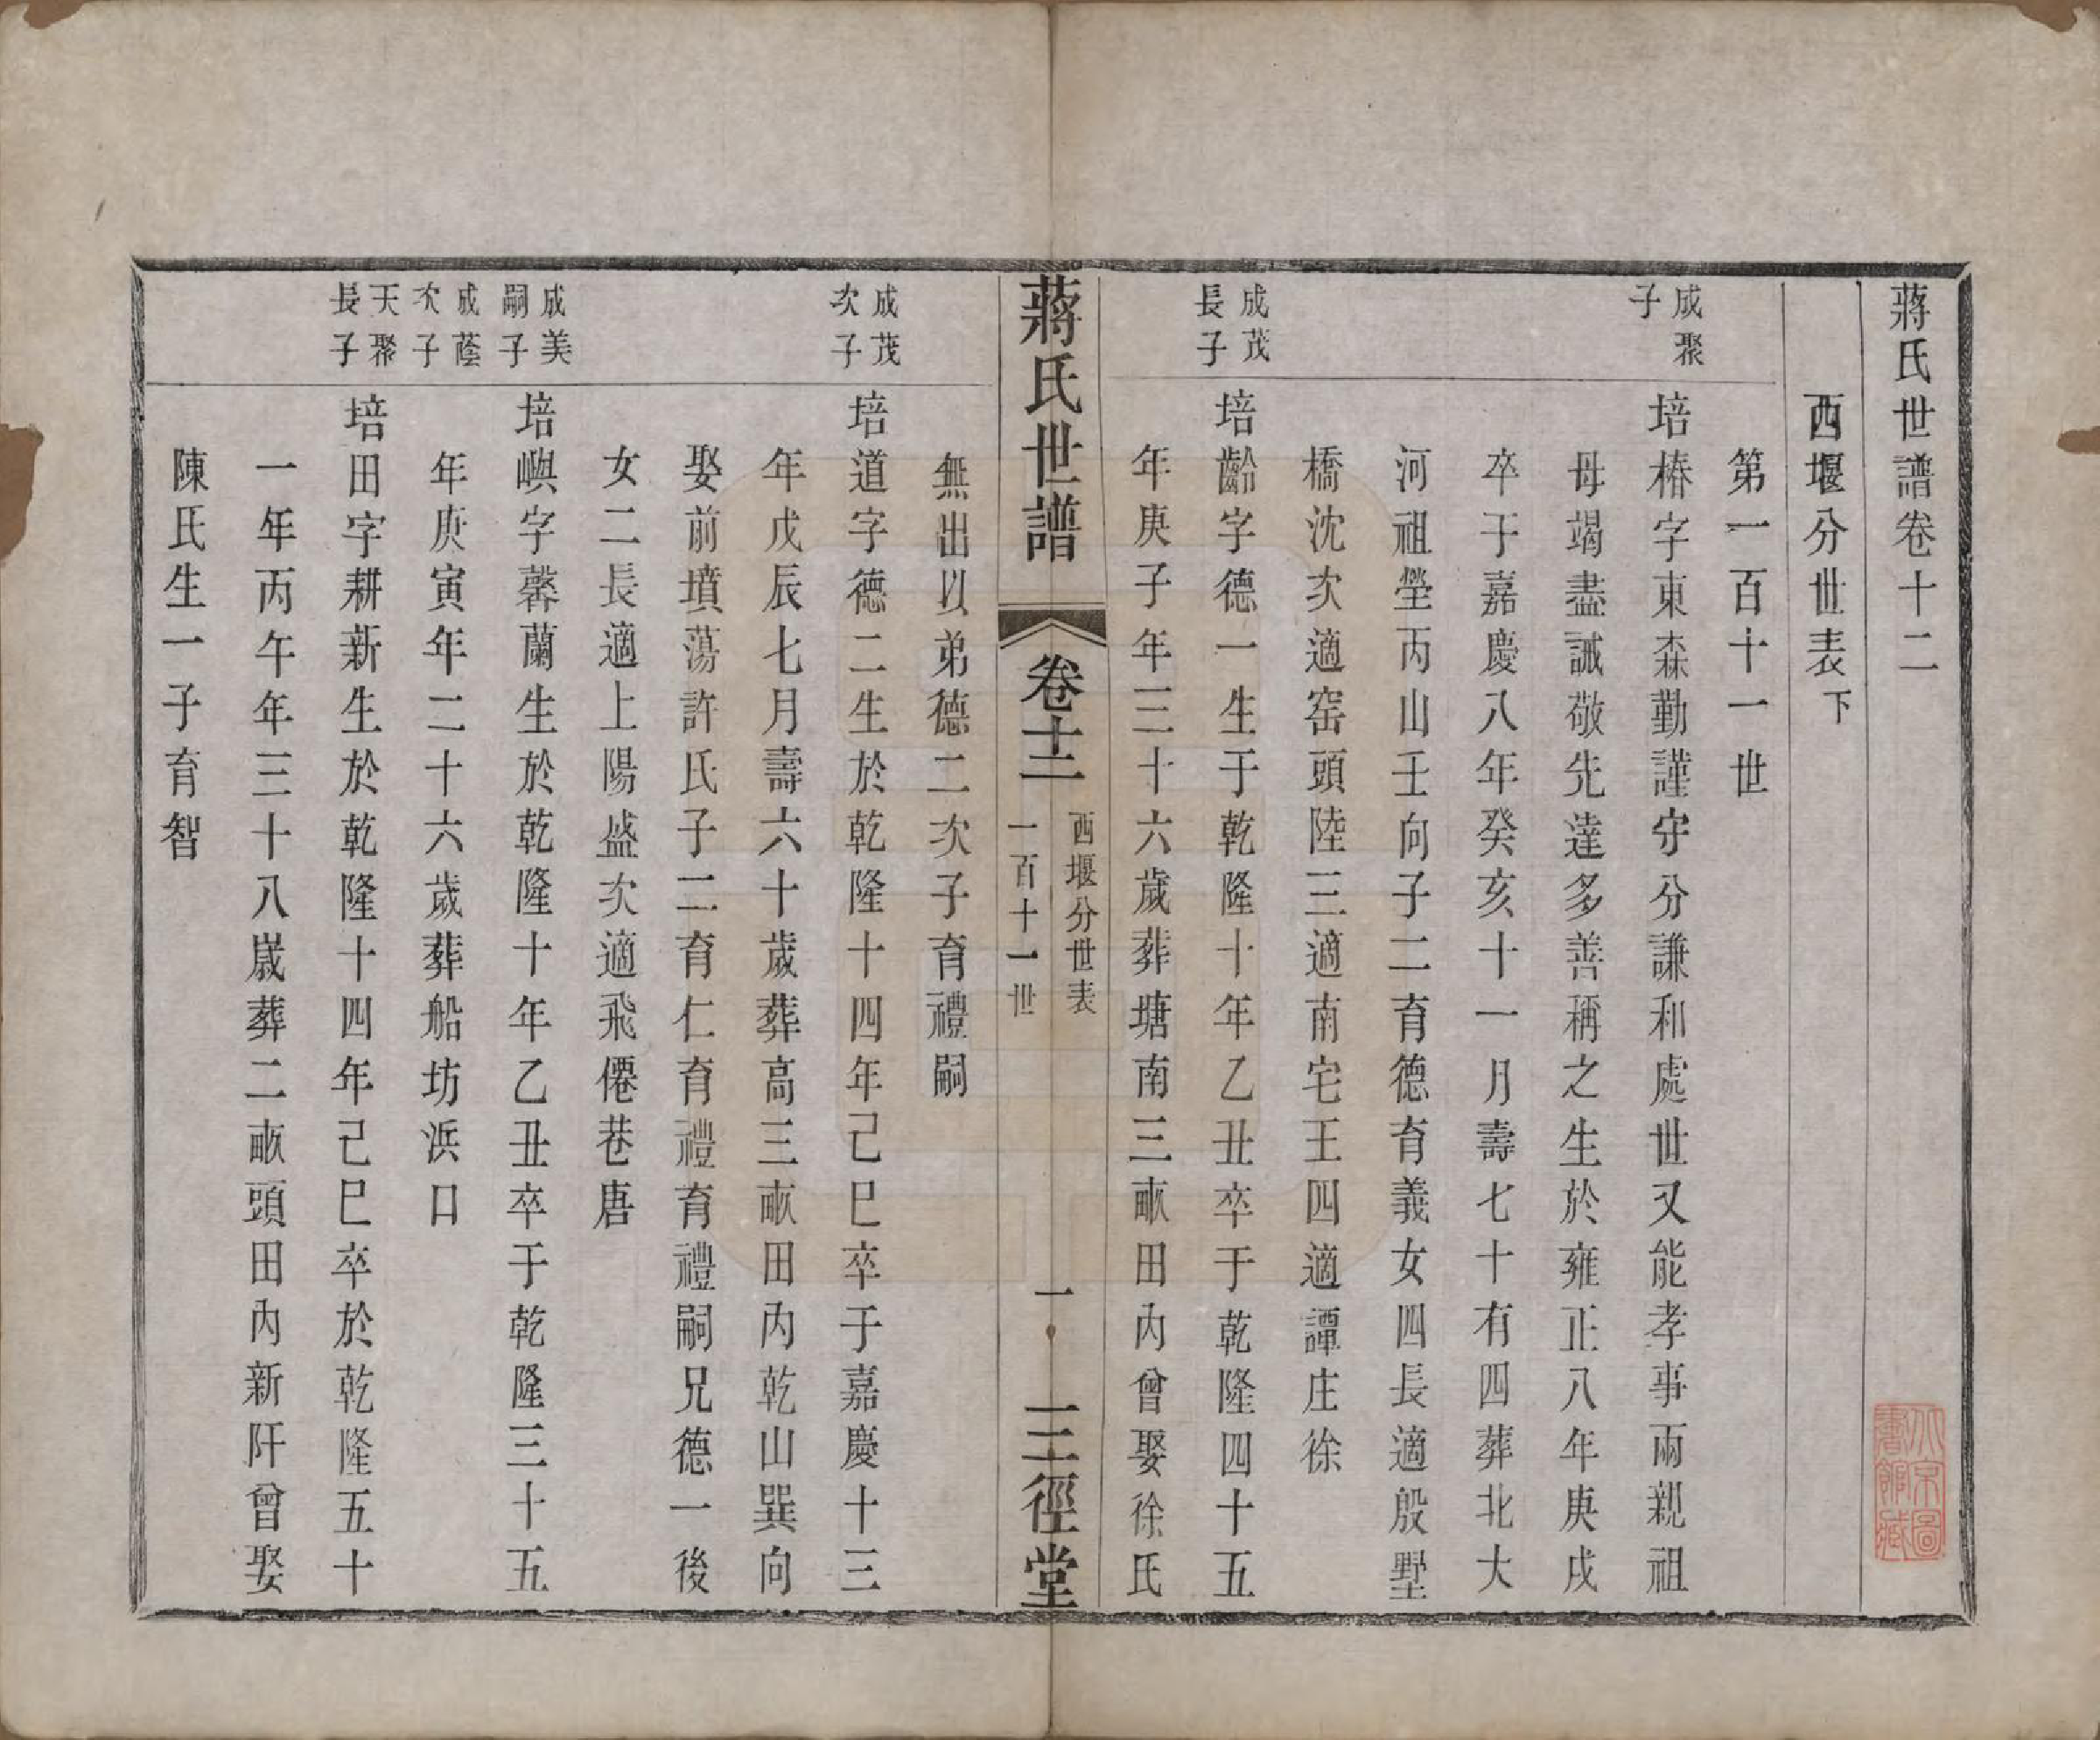 蔣氏世譜卷十二
西堰分世表下
第一百十一世
成聚子
培椿字東森勤謹守分謙和處世又能孝事兩親祖
母竭盡誠敬先達多善稱之生於雍正八年庚戌
卒于嘉慶八年癸亥十一月壽七十有四葬北大
河祖塋丙山壬向子二育德育義女四長適殷墅
橋沈次適窑頭陸三適南宅王四適譚庄徐
成茂長子
培齡字德一生于乾隆十年乙丑卒于乾隆四十五
年庚子年三十六歲葬塘南三畝田內曾娶徐氏
蔣氏世譜
卷十二
西堰分世表
一百十一世
一
三徑堂
無出以弟德二次子育禮嗣
成茂次子
培道字德二生於乾隆十四年己巳卒于嘉慶十三
年戊辰七月壽六十歲葬高三畝田內乾山巽向
娶前墳蕩許氏子二育仁育禮育禮嗣兄德一後
女二長適上陽盛次適飛僊巷唐
成美嗣子
培嶼字馨蘭生於乾隆十年乙丑卒于乾隆三十五
成蔭次子
年庚寅年二十六歲葬船坊浜口
天聚長子
培田字耕新生於乾隆十四年己巳卒於乾隆五十
一年丙午年三十八歲葬二畝頭田內新阡曾娶
陳氏生一子育智